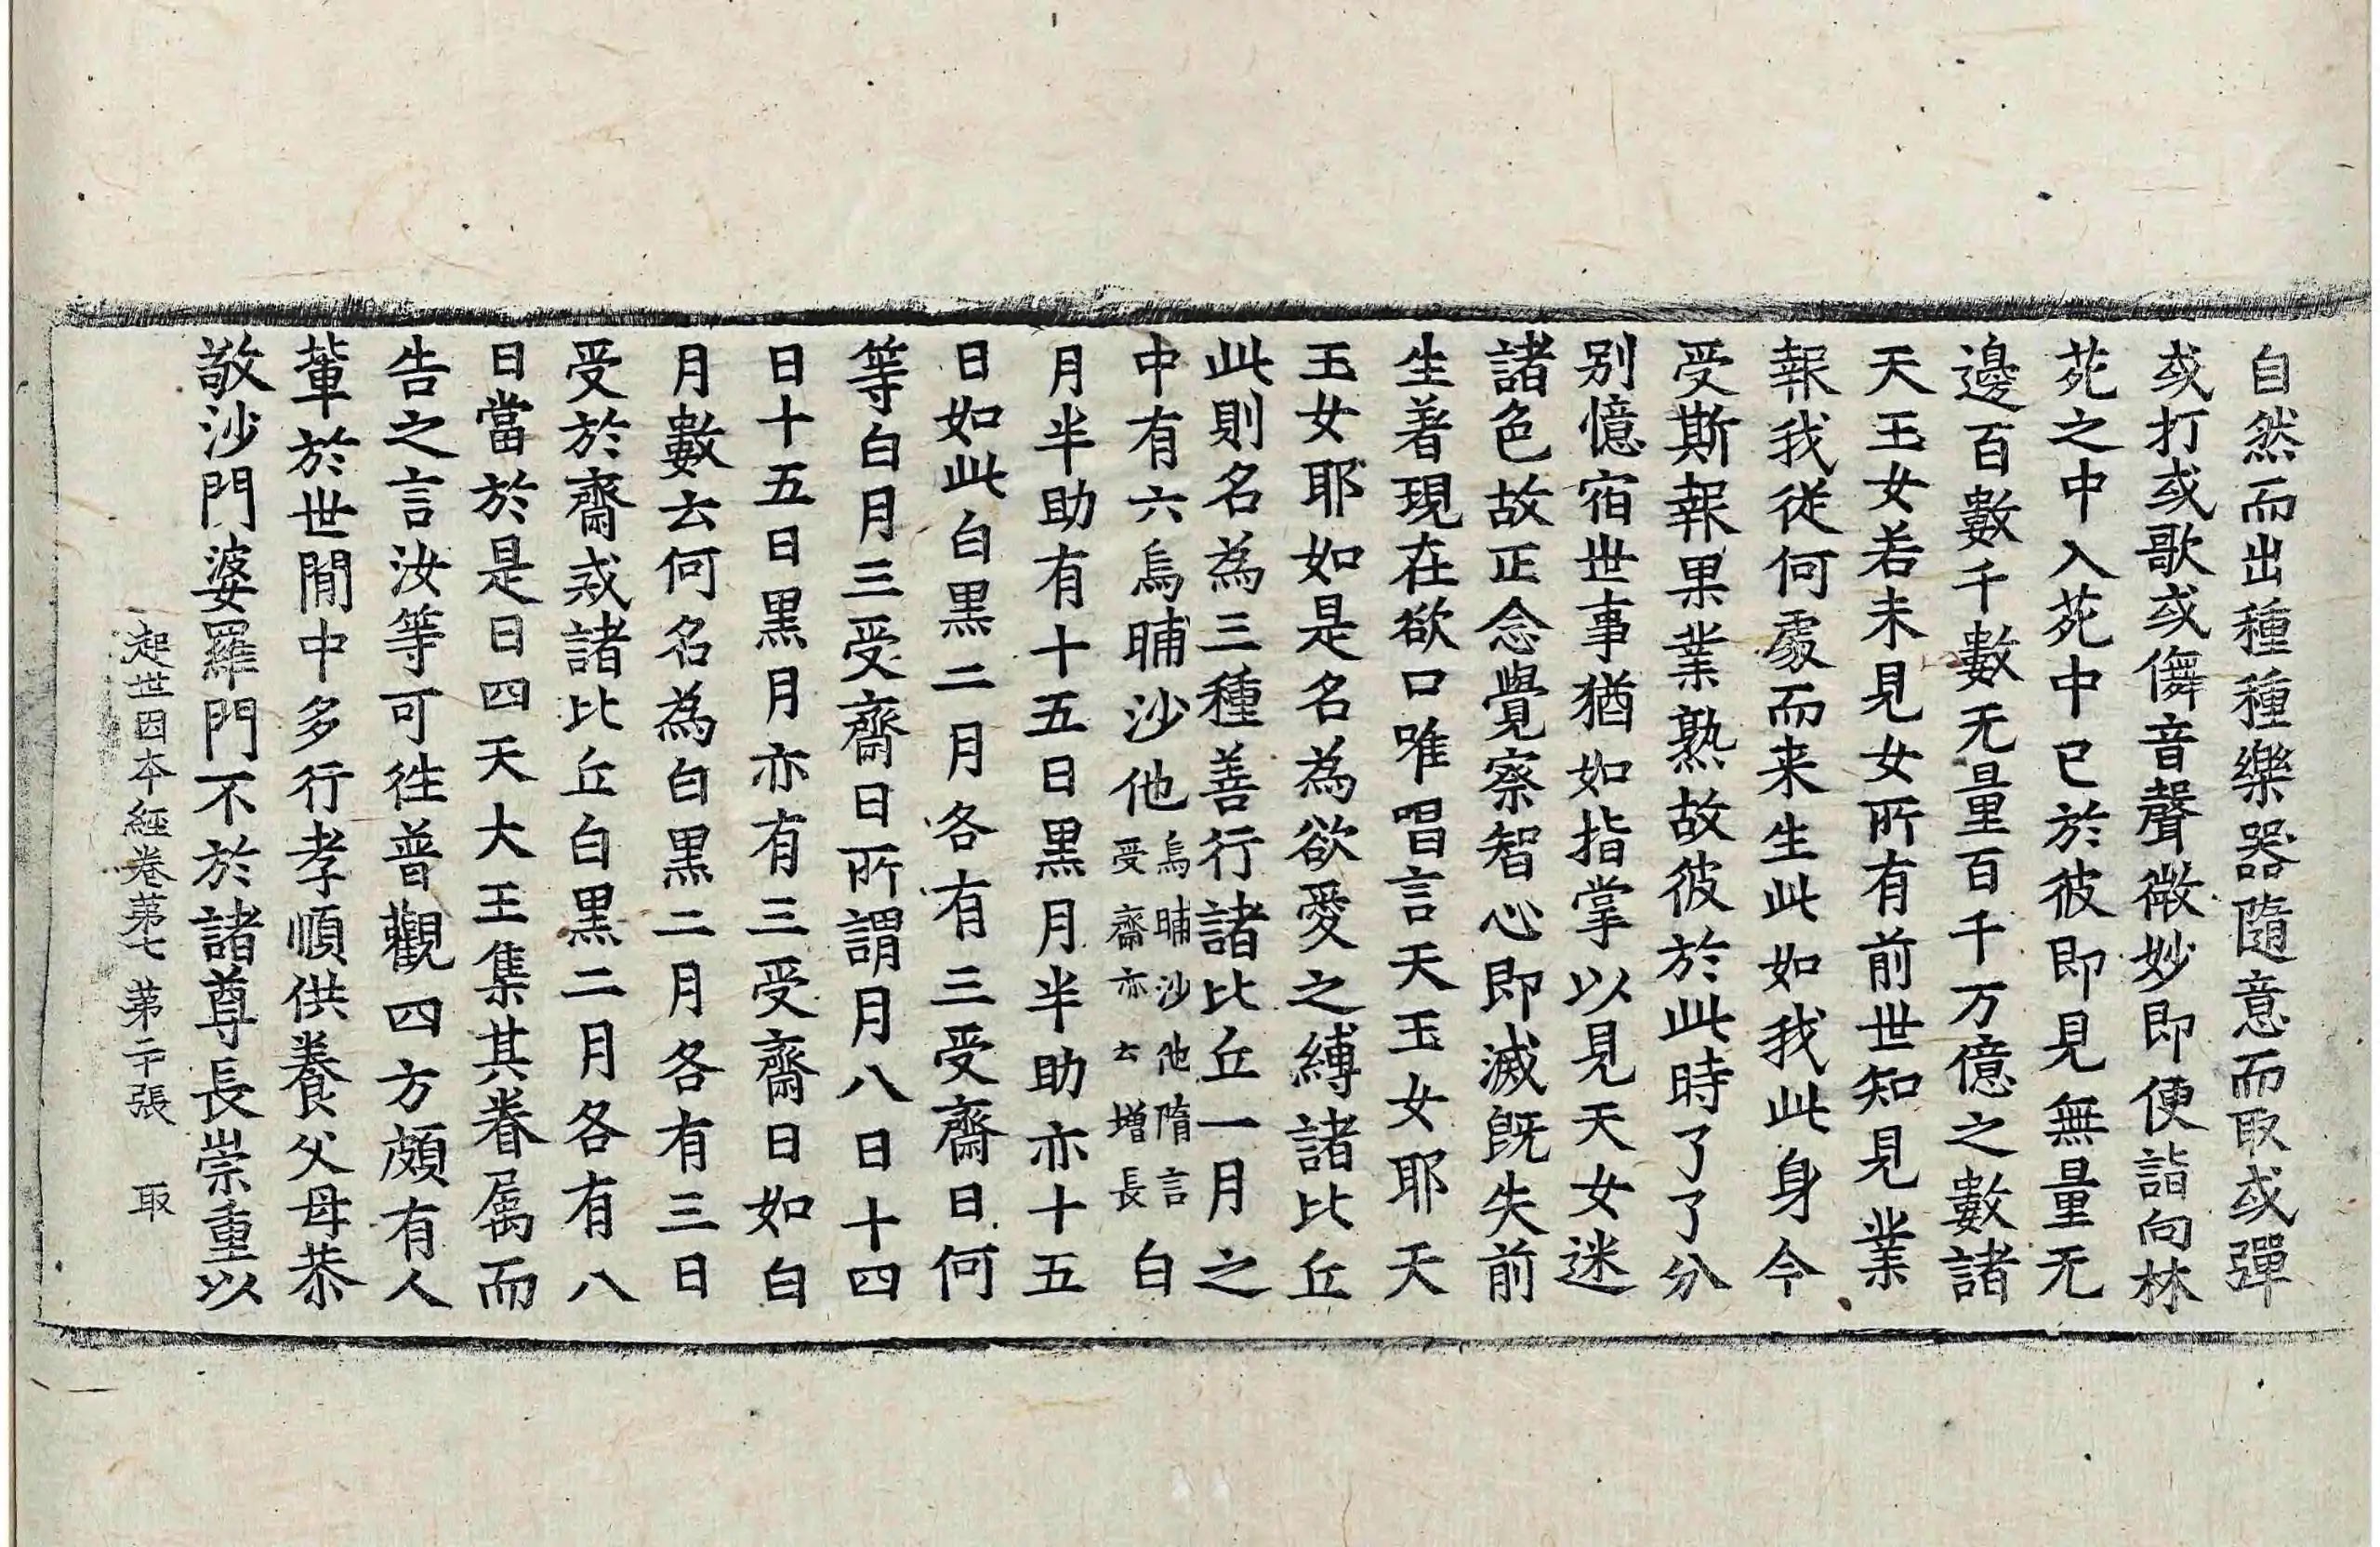 自然而出種種樂器隨意而取或彈
或打或歌或儛音聲微妙即便詣向林
苑之中入苑中已於彼即見無量无
邊百數千數无量百千万億之數諸
天玉女若未見女所有前世知見業
報我從何處而来生此如我此身今
受斯報果業熟故彼於此時了了分
别憶宿世事猶如指掌以見天女迷
諸色故正念覺察智心即滅旣失前
生著現在欲口唯唱言天玉女耶天
玉女耶如是名為欲愛之縛諸比丘
此則名為三種善行諸比丘一月之
中有六烏晡沙他烏晡沙他隋言受齋亦云增長白
月半助有十五日黑月半助亦十五
日如此白黑二月各有三受齋日何
等白月三受齋日所謂月八日十四
日十五日黑月亦有三受齋日如白
月數云何名為白黑二月各有三日
受於齋戒諸比丘白黑二月各有八
日當於是日四天大王集其眷屬而
告之言汝等可往普觀四方頗有人
輩於世閒中多行孝順供養父母恭
敬沙門婆羅門不於諸尊長崇重以
起世因本經卷第七 第二十張 取